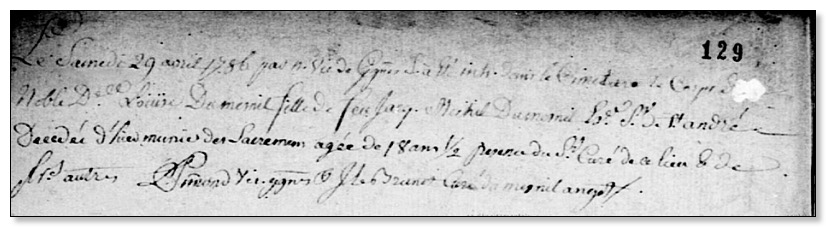 129
Le Samedi 29 avril 1786 par n. Vic de Ggnes a été inh. dans le Cimetiere le Corps de
Noble D.elle Louise Dumesnil fille de feu Jacq. Michel Dumesnil Es.r S.r de St andré
Decedée d'hier munie des Sacremens agée de 18 ans 1/2 presence du S.r Curé de ce lieu & de
autres vic. ggnes & J. le Brunet Curé du mesnil